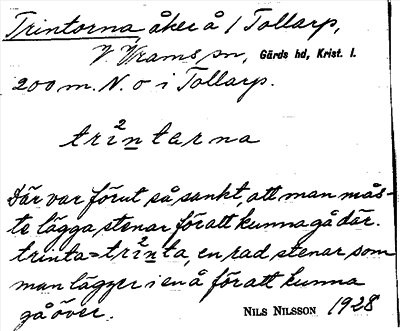 Trintorna, åker å 1 Tollarp,
V. Vrams sn, Gärds hd, Krist. l.
200 m. N. o i Tollarp.
tri²ntarna
Där var förut så sankt, att man mås-
te lägga stenar för att kunna gå där.
trinta = tri²nta, en rad stenar som
man lägger i en å för att kunna
gå över.
NILS NILSSON 1928